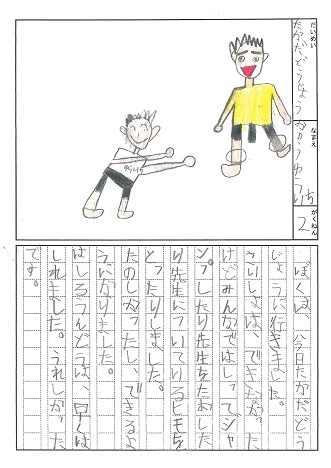 だいめい
たかだどうじょう
なまえ
ゆういち
がくねん
2
ぼくは、今日たかだどう
じょうに行きました。
さいしょは、できなかった
けどみんなではしって、ジャ
ンプしたり先生をたおした
り先生についているヒモを
とったりしました。
たのしかったし、できるよ
うになりました。
はしるうんどうは、早くは
しれました。うれしかった
です。